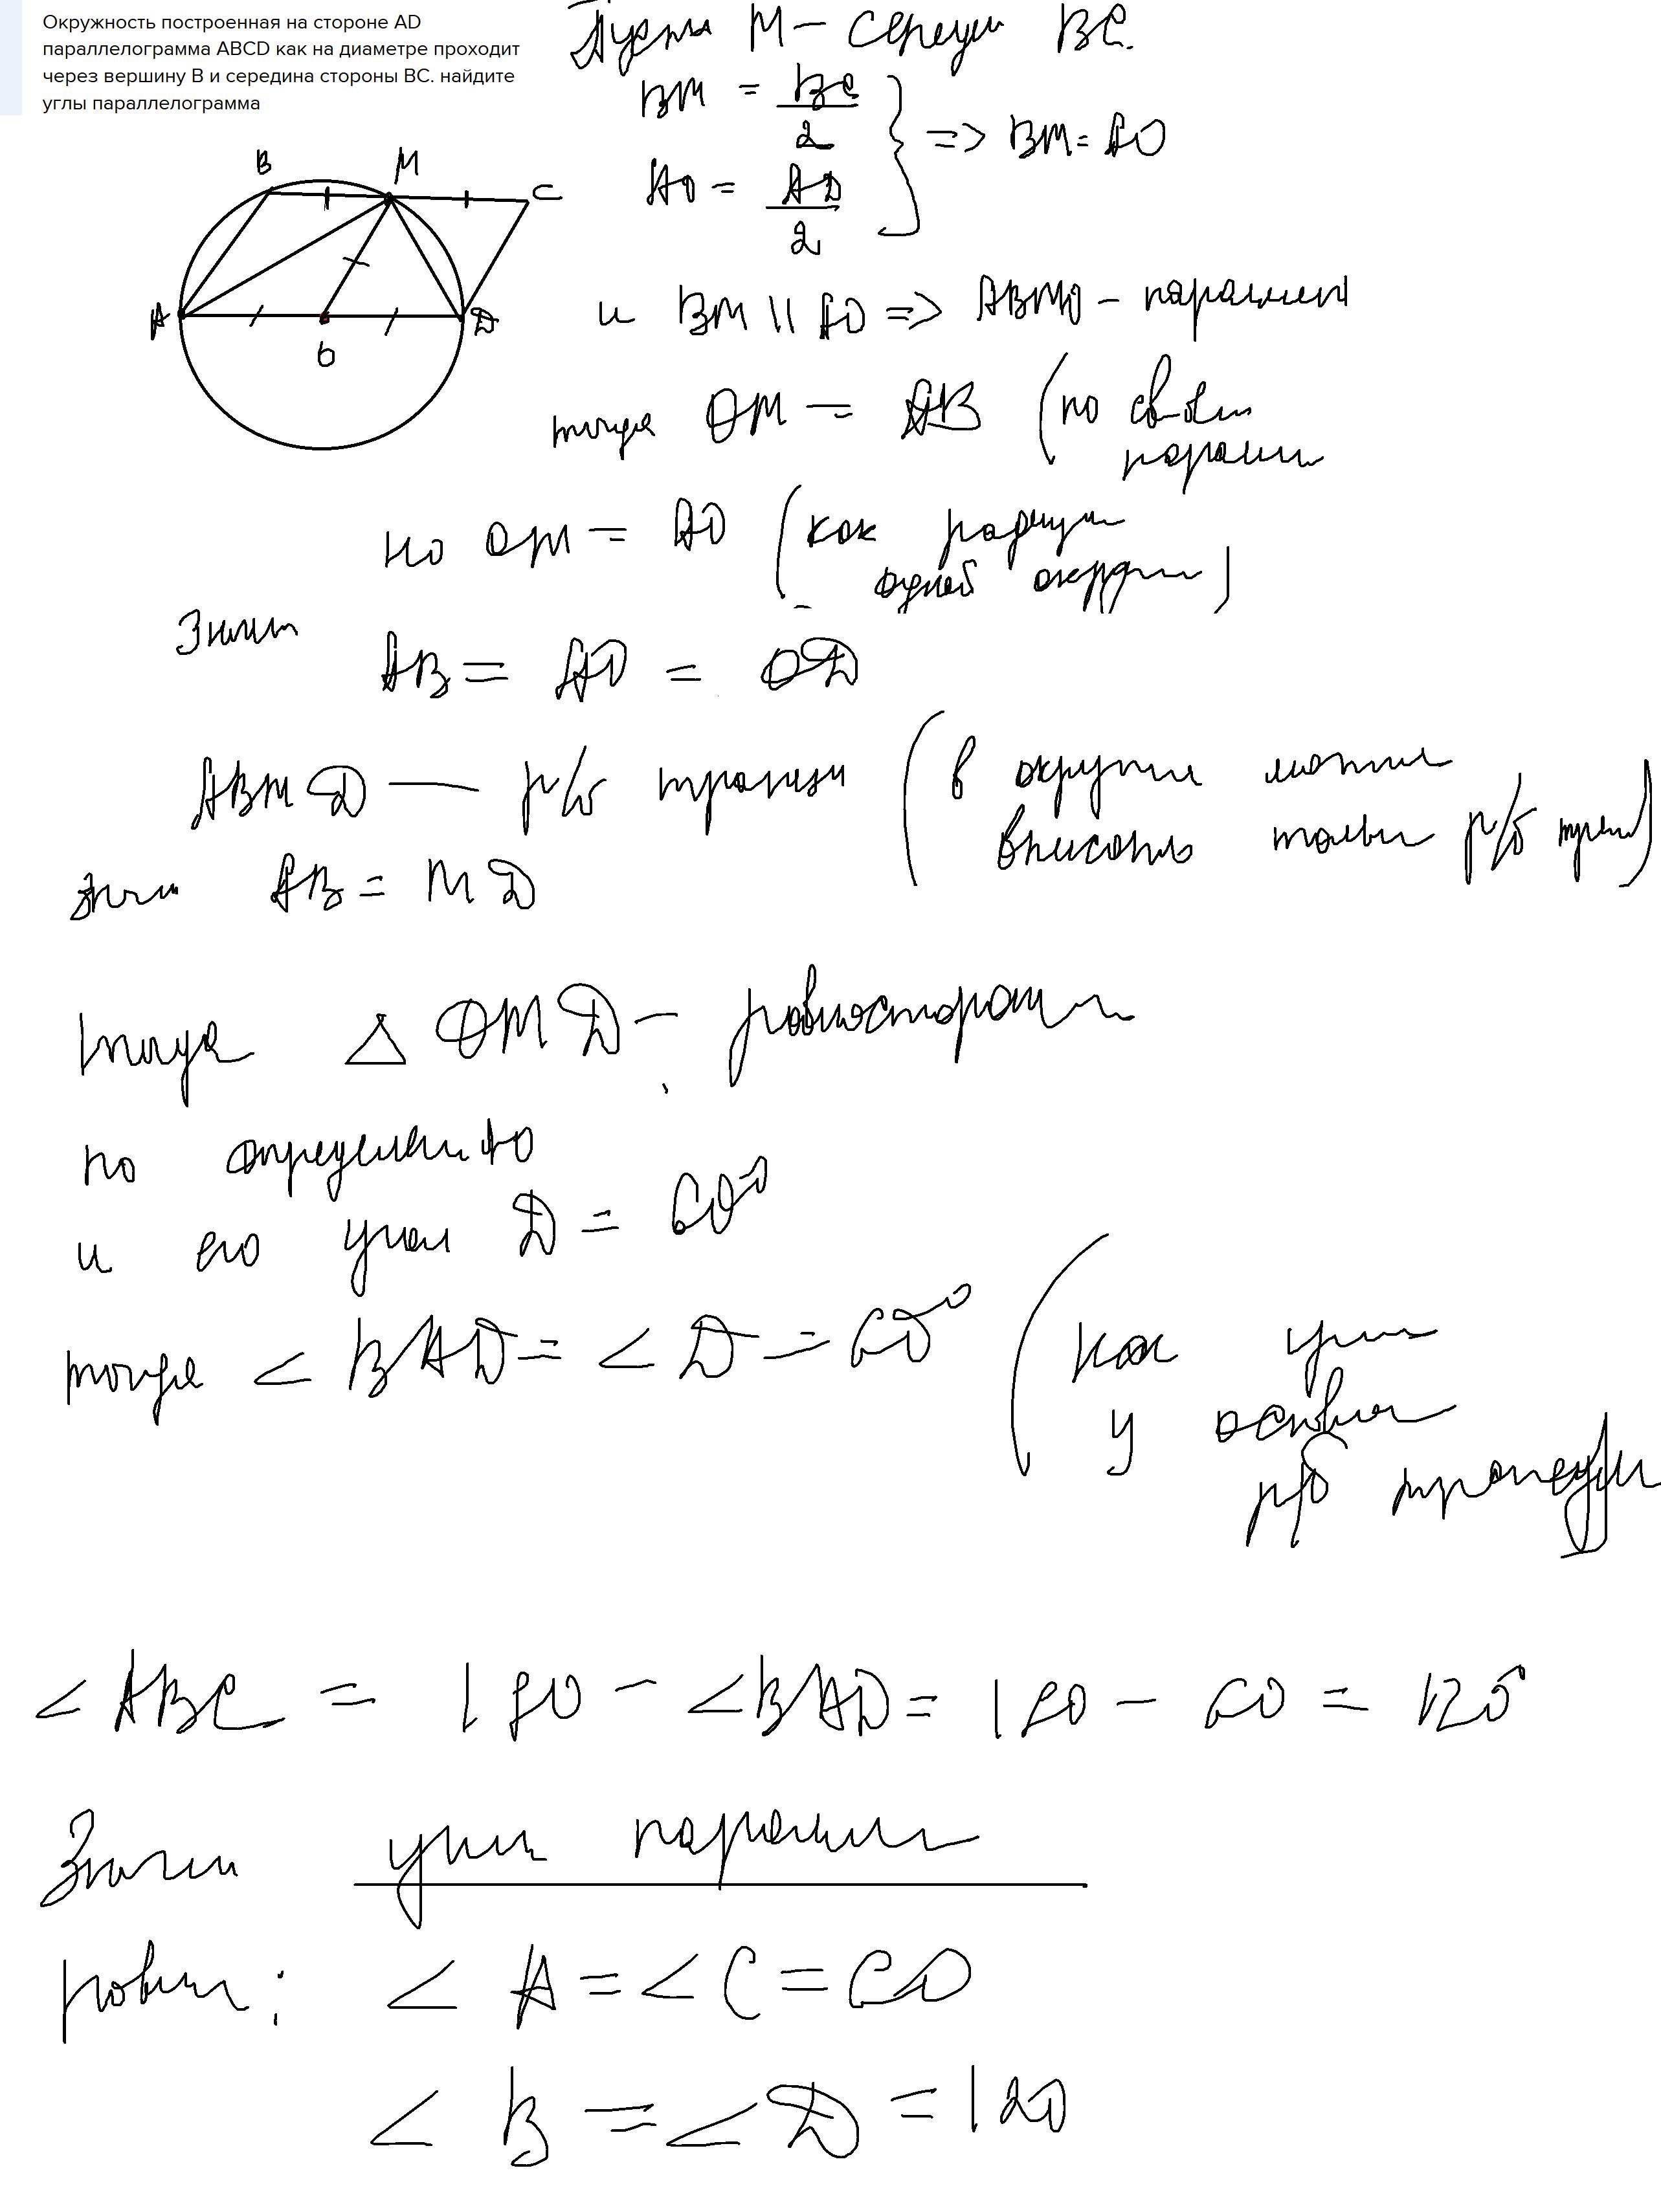 Окружность построенная на стороне AD
параллелограмма ABCD как на диаметре проходит
через вершину В и середина стороны ВС. найдите
углы параллелограмма
Пусть M - середин BC.
BM = BC/2
AO = AD/2
=> BM = AO
B M C
A O D
и BM || AO => ABMO - параллел
тогда OM = AB (по свойст
паралл
но OM = AO (как радиус
одной окружн)
Значит
AB = AO = OD
ABMD — р/б трапеци (в окружн можно
вписать только р/б трап)
значит AB = MD
тогда △ OMD - равносторон
по определению
и его угол D = 60°
тогда < BAD = < D = 60° (как углы
у основан
р/б трапеции)
< ABC = 180 - < BAD = 180 - 60 = 120°
Значит углы паралл
равны: < A = < C = 60
< B = < D = 120